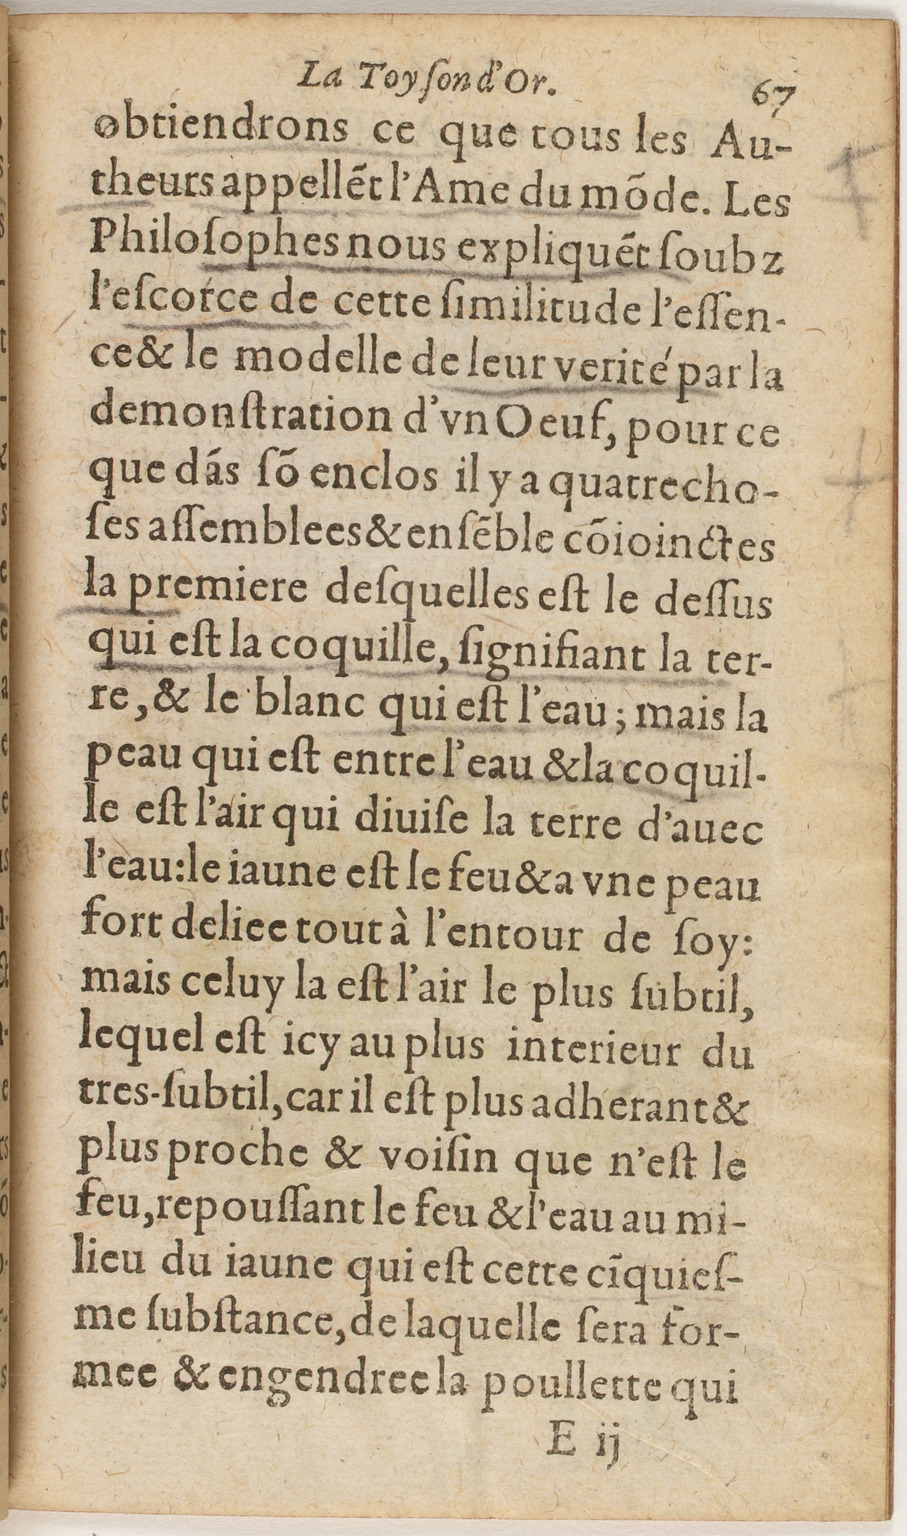 La Toyſon d'Or.
67
obtiendrons ce que tous les Au-
theurs appellẽt l'Ame du mõde. Les
Philoſophes nous expliquẽt ſoubz
l'eſcorce de cette ſimilitude l'eſſen-
ce & le modelle de leur verité par la
demonſtration d'vn Oeuf, pour ce
que dãs ſõ enclos il y a quatre cho-
ſes aſſemblees & enſẽble cõioinctes
la premiere deſquelles eſt le deſſus
qui eſt la coquille, ſignifiant la ter-
re, & le blanc qui eſt l'eau; mais la
peau qui eſt entre l'eau & la coquil-
le eſt l'air qui diuiſe la terre d'auec
l'eau: le iaune eſt le feu & a vne peau
fort deliee tout à l'entour de ſoy:
mais celuy la eſt l'air le plus ſubtil,
lequel eſt icy au plus interieur du
tres-ſubtil, car il eſt plus adherant &
plus proche & voiſin que n'eſt le
feu, repouſſant le feu & l'eau au mi-
lieu du iaune qui eſt cette cĩquieſ-
me ſubſtance, de laquelle ſera for-
mee & engendree la poullette qui
E ij